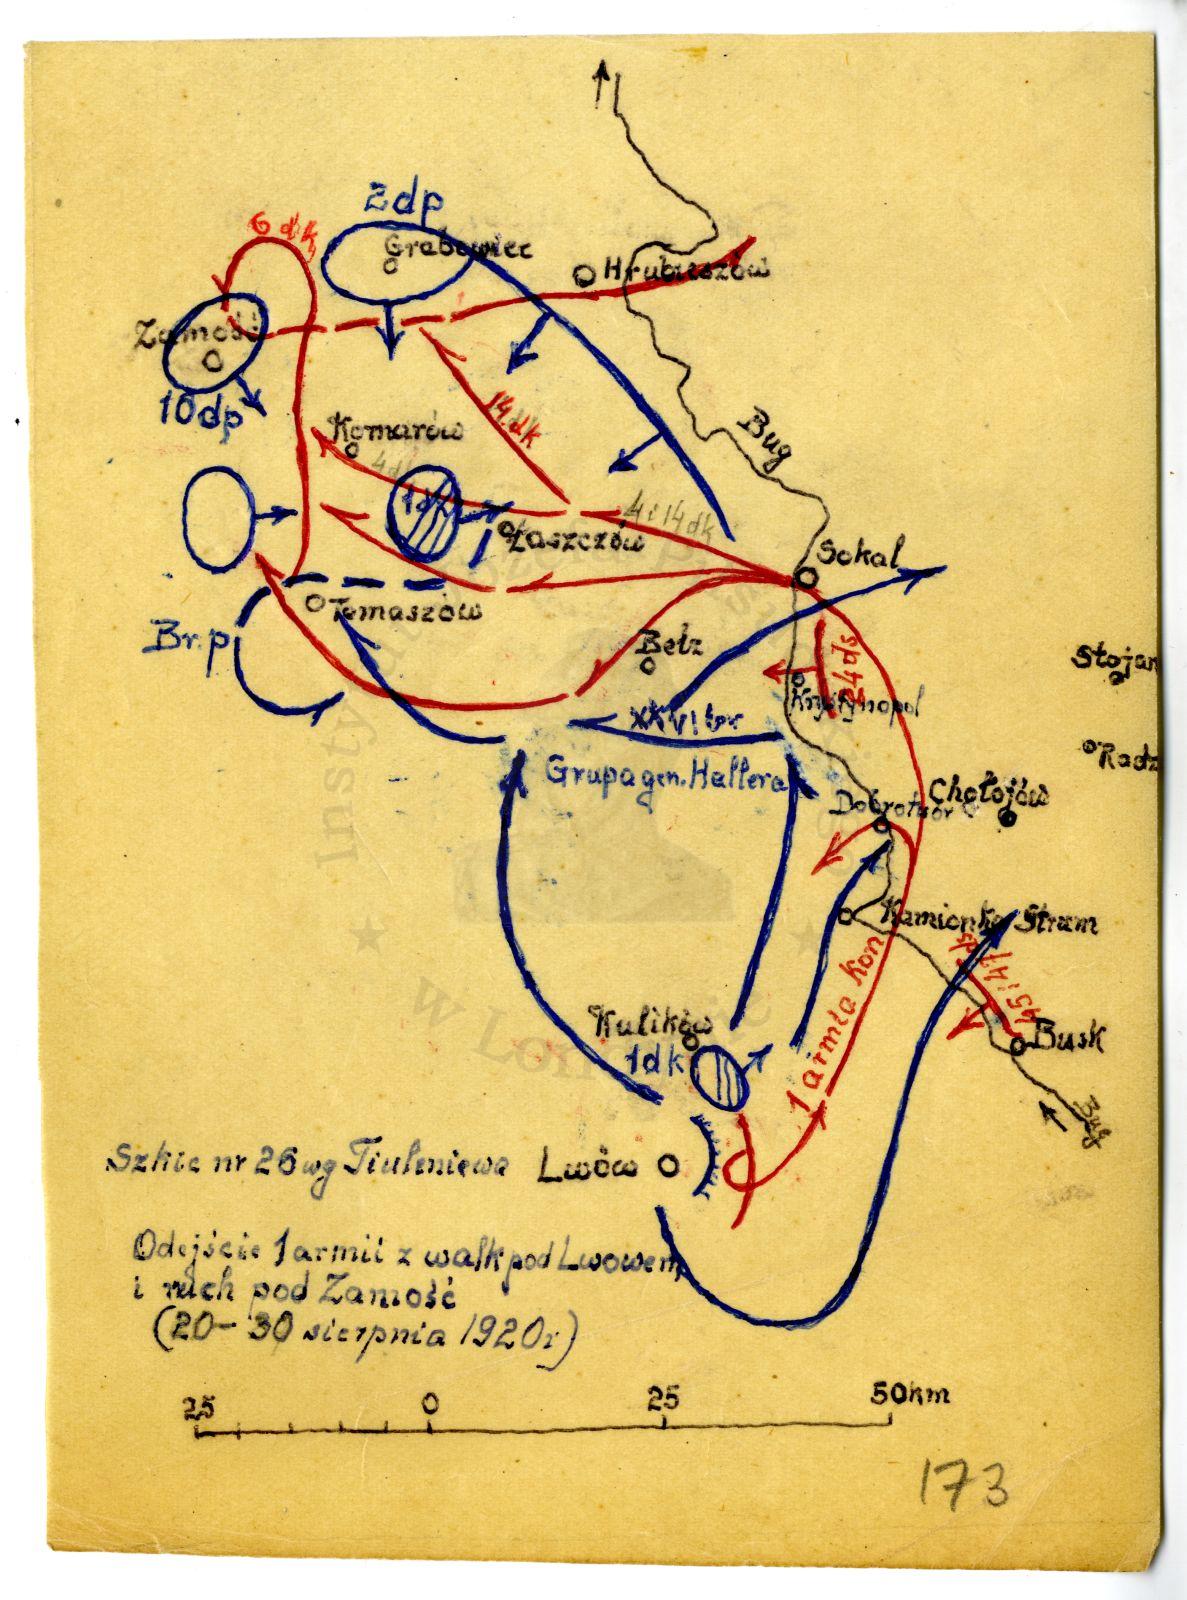 2dp
6 dk
Grabowiec
Hrubieszów
Zamość
10dp
14 dk
Komarów
4dk
1dk
Bug
4 i 14 dk
Łaszczów
Sokal
Tomaszów
Br. p
Bełz
24 ds
Stojan
Krystynopol
XXVI br
Radz
Grupa gen. Hallera
Chołojów
Dobrotwór
Kamionka Strum
45 i 47 ds
1 armia kon
Kulików
1dk
Busk
Bug
Szkic nr 26 wg Tiuleniewa
Lwów
Odejście 1 armii z walk pod Lwowem
i ruch pod Zamość
(20-30 sierpnia 1920r)
25 0 25 50km
173
Instytut Józefa Piłsudskiego
w Londynie